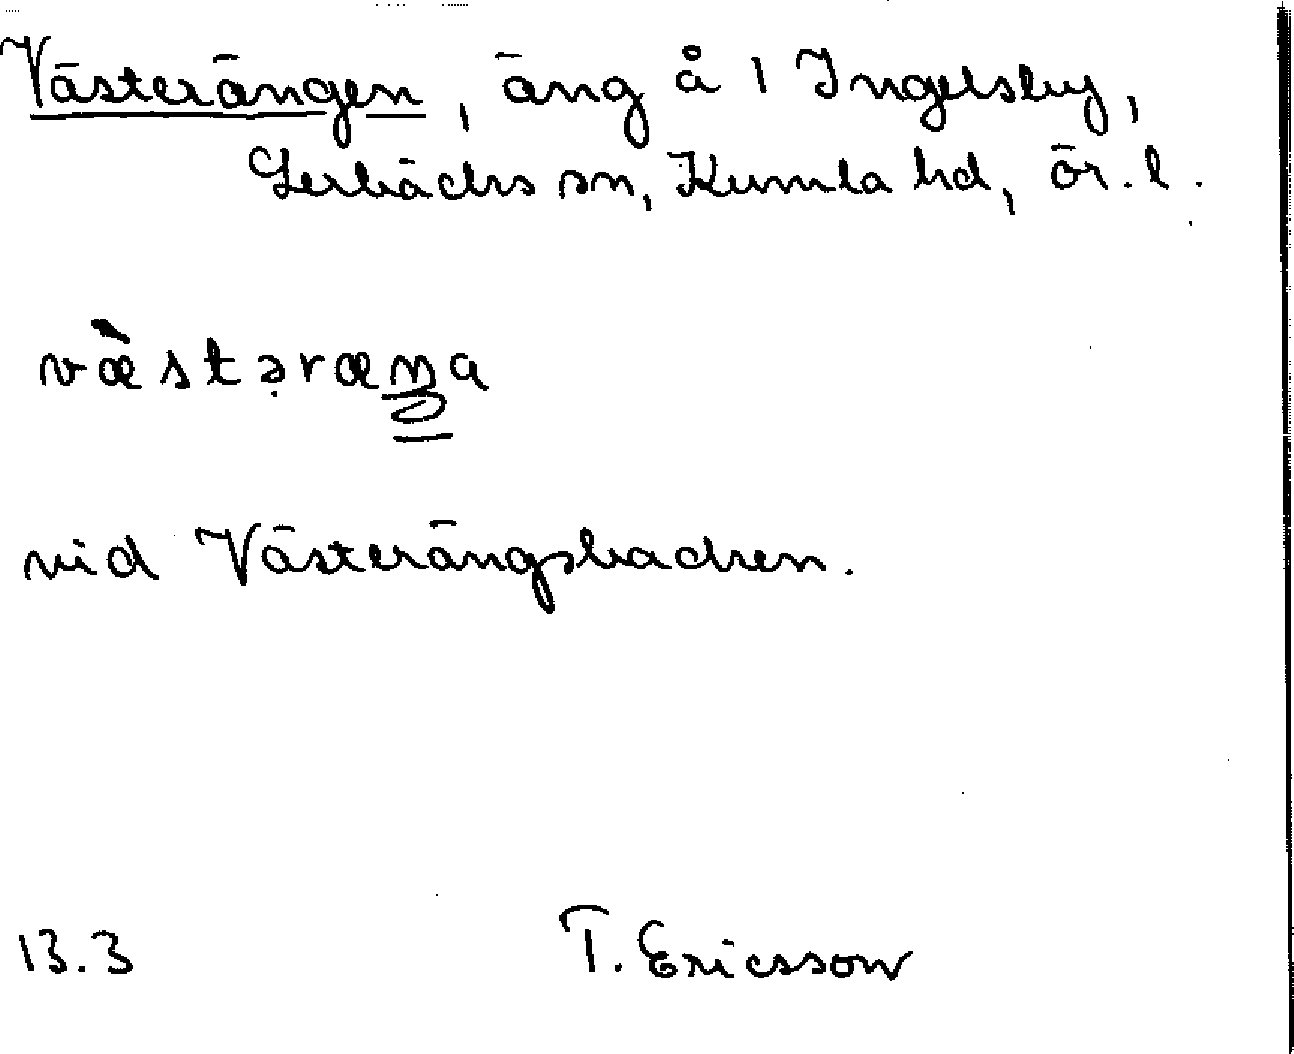 Västerängen, äng å 1 Ingelsby,
Lerbäcks sn, Kumla hd, ör. l.
væ̀stəræŋa
vid Västerängsbacken.
13.3 T. Ericsson